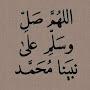 اللهُمَّ صَلِّ
وَسَلِّم عَلىٰ
نَبِينَا مُحَمَّد